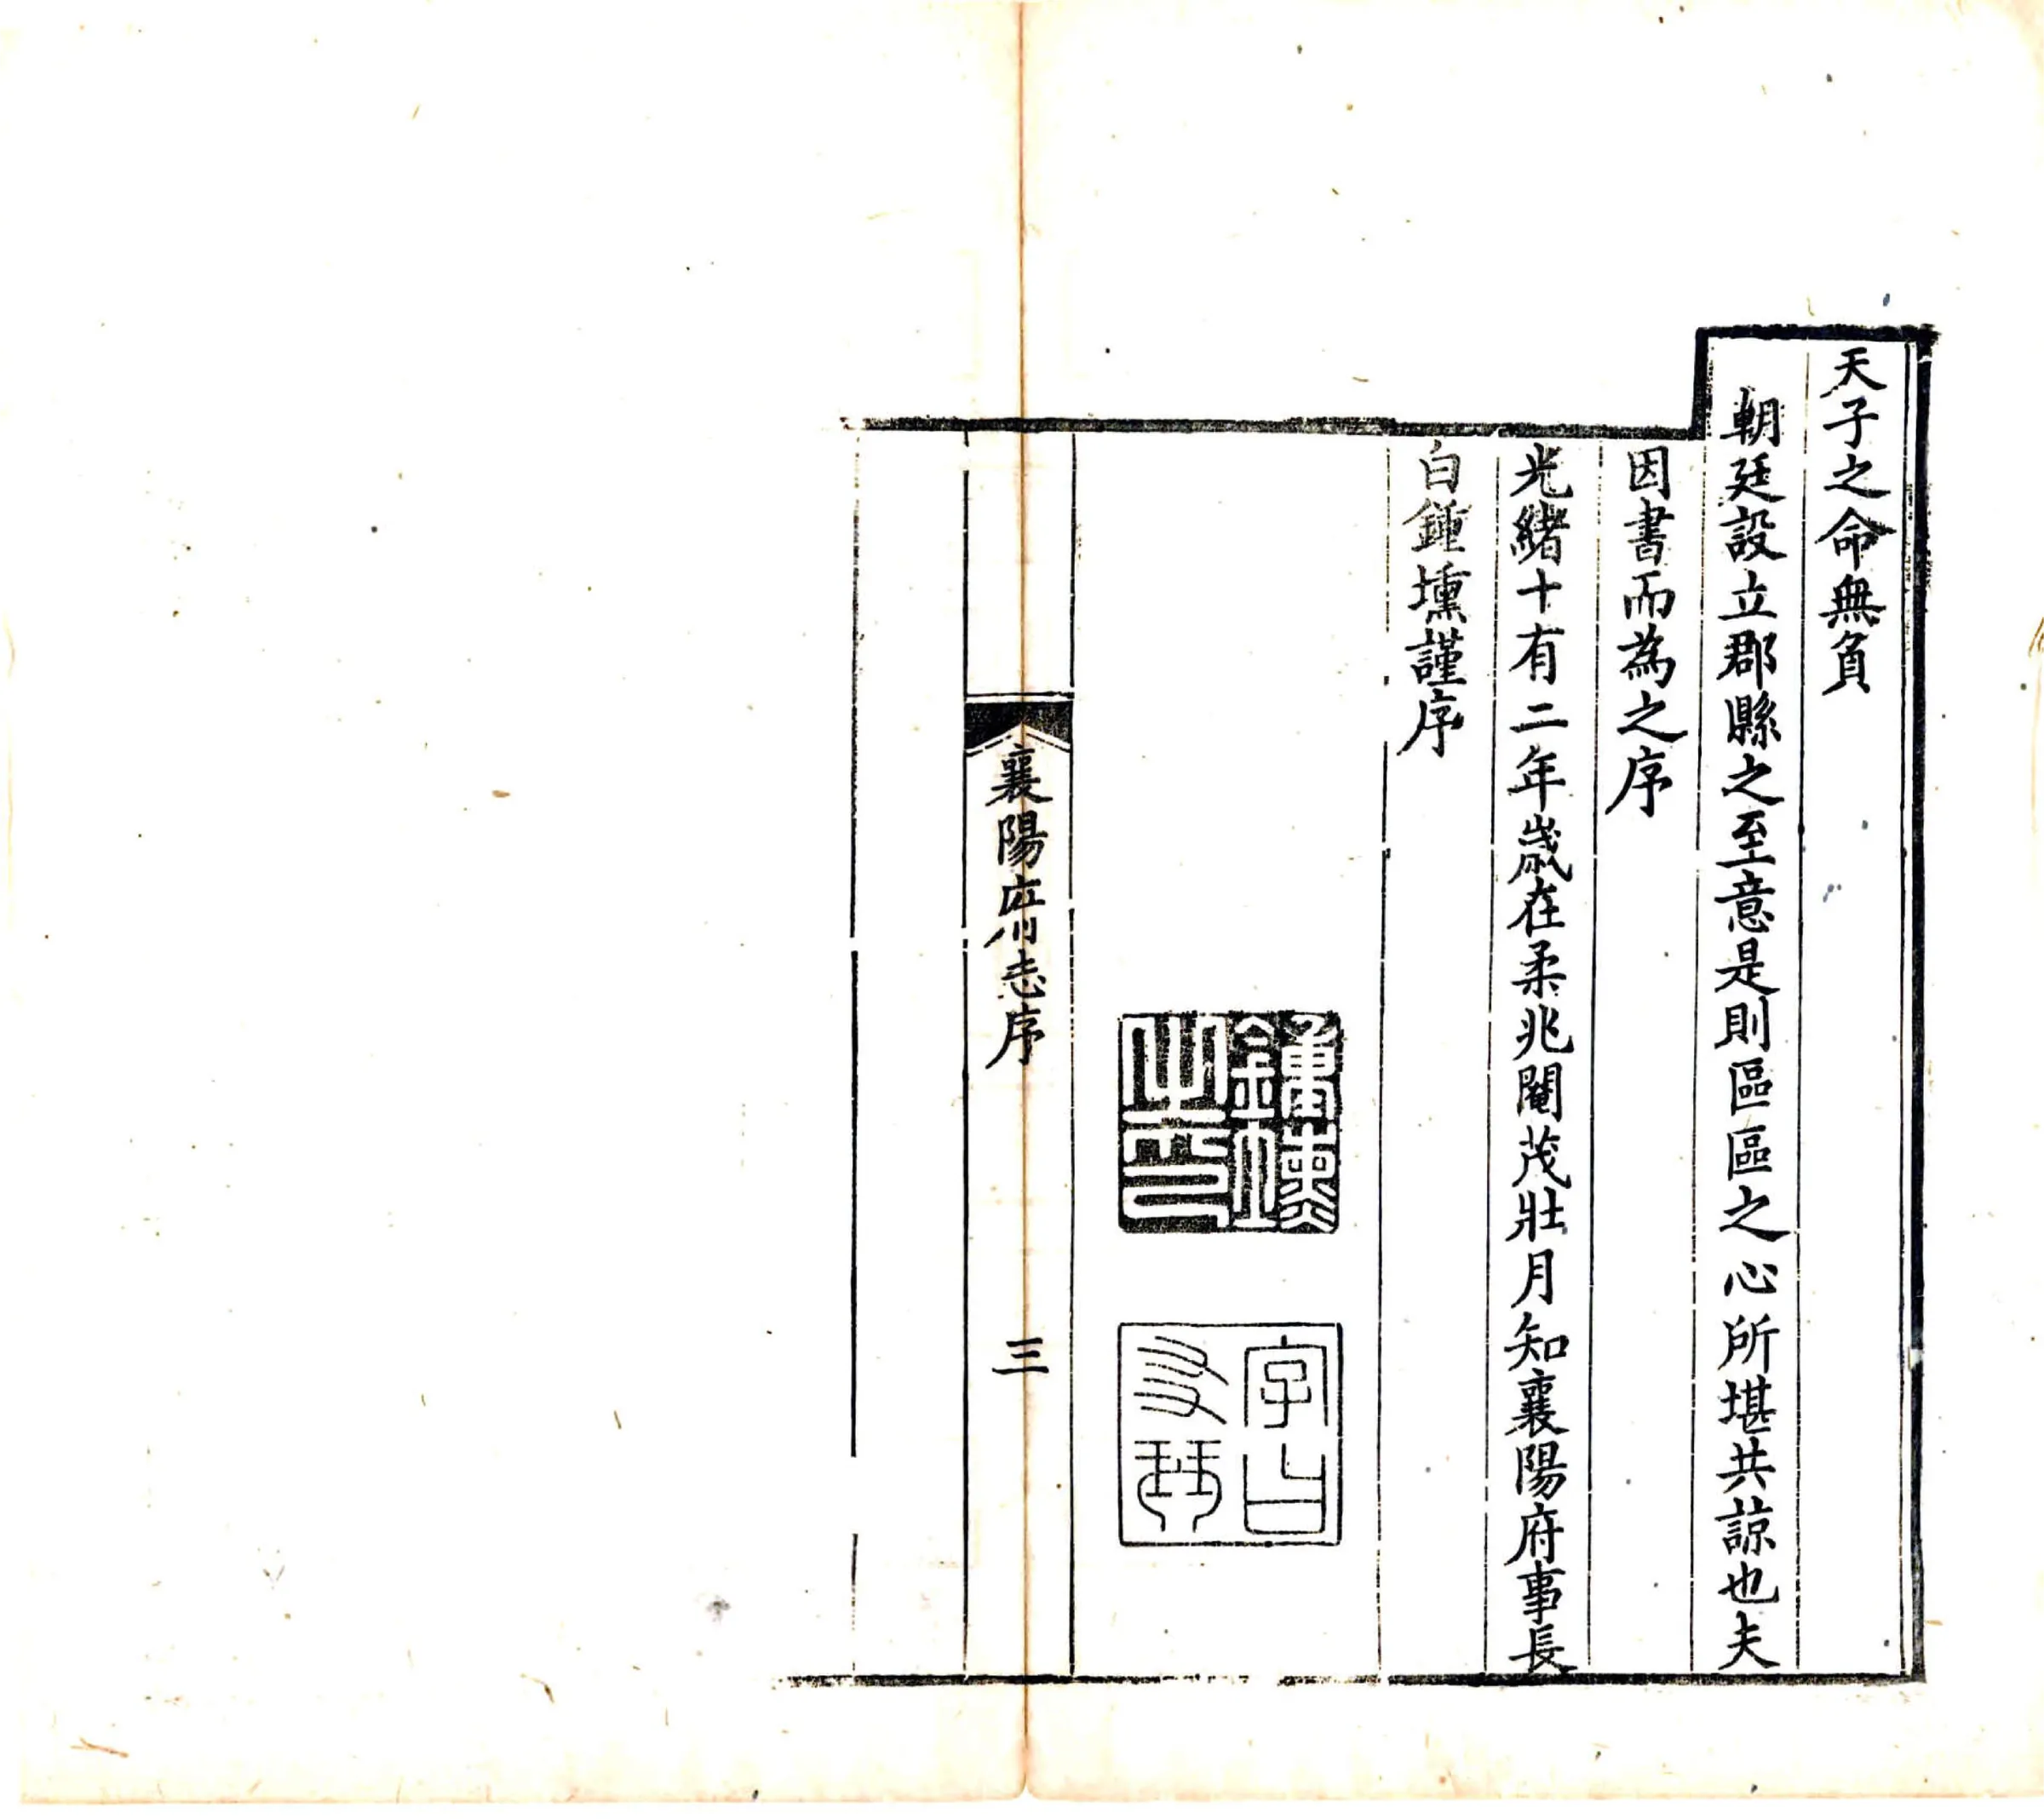 天子之命無負
朝廷設立郡縣之至意是則區區之心所堪共諒也夫
因書而為之序
光緒十有二年歲在柔兆閹茂壯月知襄陽府事長
白鍾壎謹序
鍾壎之印
字曰友琴
襄陽府志序
三